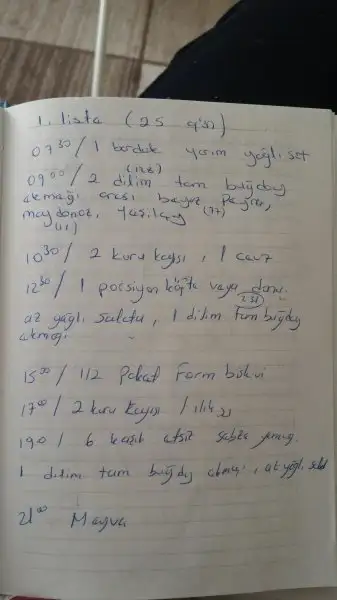 1. liste (25 gün)
07 30 / 1 bardak yarım yağlı süt
09 00 / 2 dilim tam buğday
ekmeği arası beyaz peynir,
maydonoz, yeşilçay
10 30 / 2 kuru kayısı, 1 ceviz
12 30 / 1 porsiyon köfte veya
az yağlı salata, 1 dilim tam buğday
ekmeği
15 00 / 1/2 Paket Form bisküvi
17 00 / 2 kuru kayısı / ılık su
19 0 / 6 kaşık etsiz sebze yemeği
1 dilim tam buğday ekmeği, az yağlı salat
21 00 Meyva